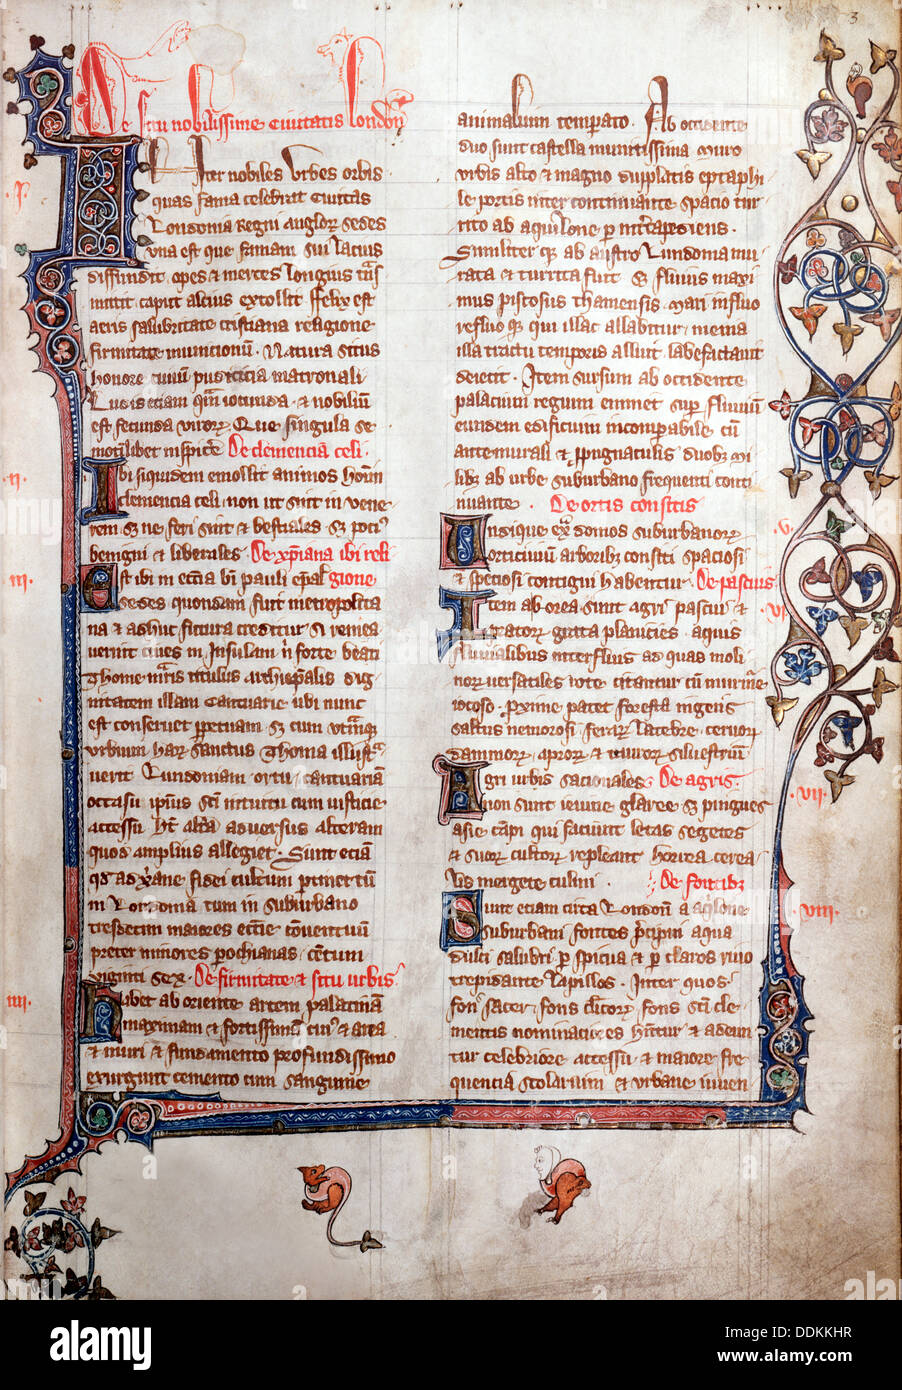 3
De situ nobilissime Ciuitatis London
Inter nobiles Urbes orbis
quas fama celebrat Ciuitas
Londonia Regni Anglor sedes
vna est que famam sui lacius
diffundit opes & merces longius
mittit caput alcius extollit ffelix est
aeris salubritate cristiana religione
firmitate municionum. Natura situs
honore ciuium pudicicia matronali
Ludis eciam qm iocunda & nobilium
est fecunda viror. Que singula se
motim libet inspicere De clemencia celi.
ij.
Ibi siquidem emollit animos hom
clemencia celi non ut sint in vene
rem sz ne feri sint & bestiales sz pocius
benigni & liberales. De xpiana ibi reli
iij.
Est ibi in eccia bti pauli epal gione
sedes quondam fuit metropolita
na & adhuc futura creditur si remea
uerint ciues in insulam ni forte beati
Thome mris titulus Archiepalis dig
nitatem illam Cantuarie ubi nunc
est conseruet perpetuam sz cum utramqe
urbium harz sanctus Thoma illustra
uerit Lundoniam ortu, cantuariam
occasu ipius sci intuitu cum iusticie
accessu ht altera aduersus alteram
quod amplius alleget. Sunt eciam
qd ad xpiane fidei cultum ptinet tum
in Londonia tum in suburbano
tresdecim maiores eccie conuentuum
preter minores pochianas centum
viginti sex. De firmitate & situ urbis
iiij.
Habet ab oriente artem palatinam
maximam & fortissimam cuius & area
& muri & fundamento profundissimo
exurgunt cemento cum sanguine
animalium temperato. Ab occidente
duo sunt castella munitissima muro
vrbis alto & magno duplatis eptaphi
le portis intercontinuante spacio tur
rito ab aquilone p intercapedines.
Similiter qe ab austro Lundonia mu
rata & turrita fuit sz fluuis maxi
mus piscosus Thamensis mari influo
refluo qe qui illac allabitur menia
illa tractu temporis alluit labefactauit
deiecit. Item sursum ab occidente
palacium regium eminet sup fluuium
eundem edificium incomparabile cum
antemurali & ppugnaculis duobz mi
libz ab urbe suburbano frequenti conti
nuante. De ortis consitis
v.
Undique extra domos suburbanorz
orti ciuium arboribz consiti spaciosi
& speciosi contigui habentur De pascuis
vi.
Item ab borea sunt agri pascui &
pratorz grata planicies aquis
fluuialibus interfluis ad quas moli
norz versatiles rote citantur cum murmure
iocoso. Proxime patet foresta ingens
saltus nemorosi ferarz latebre ceruorz
dammorz aprorz & taurorz siluestrium
vii.
Agri urbis sacionales De agris.
non sunt ieiune glaree sz pingues
asie campi qui faciunt letas segetes
& suorz cultorz repleant horrea cerea
lis mergete culmi. De fontibz
viii.
Sunt etiam circa London a aqilone
suburbani fontes precipui aqua
dulci salubri pspicua & p claros riuo
trepidante lapillos. Inter quos
fons sacer fons clericorz fons sci cle
mentis nominaciores hntur & adeun
tur celebriore accessu & maiore fre
quencia scolarium & urbane iuuen
alamy
alamy
alamy
DDKKHR
www.alamy.com